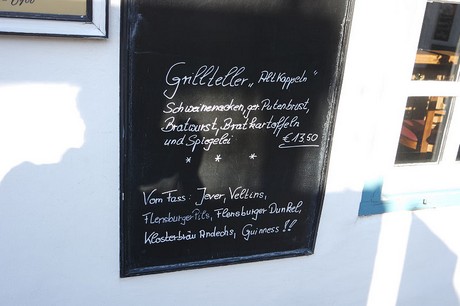 Grillteller „Alt Kappeln"
Schweinenacken, ger. Putenbrust,
Bratwurst, Bratkartoffeln
und Spiegelei € 13,50
* * *
Vom Fass: Jever, Veltins,
Flensburger Pils, Flensburger Dunkel,
Klosterbräu Andechs, Guinness !!